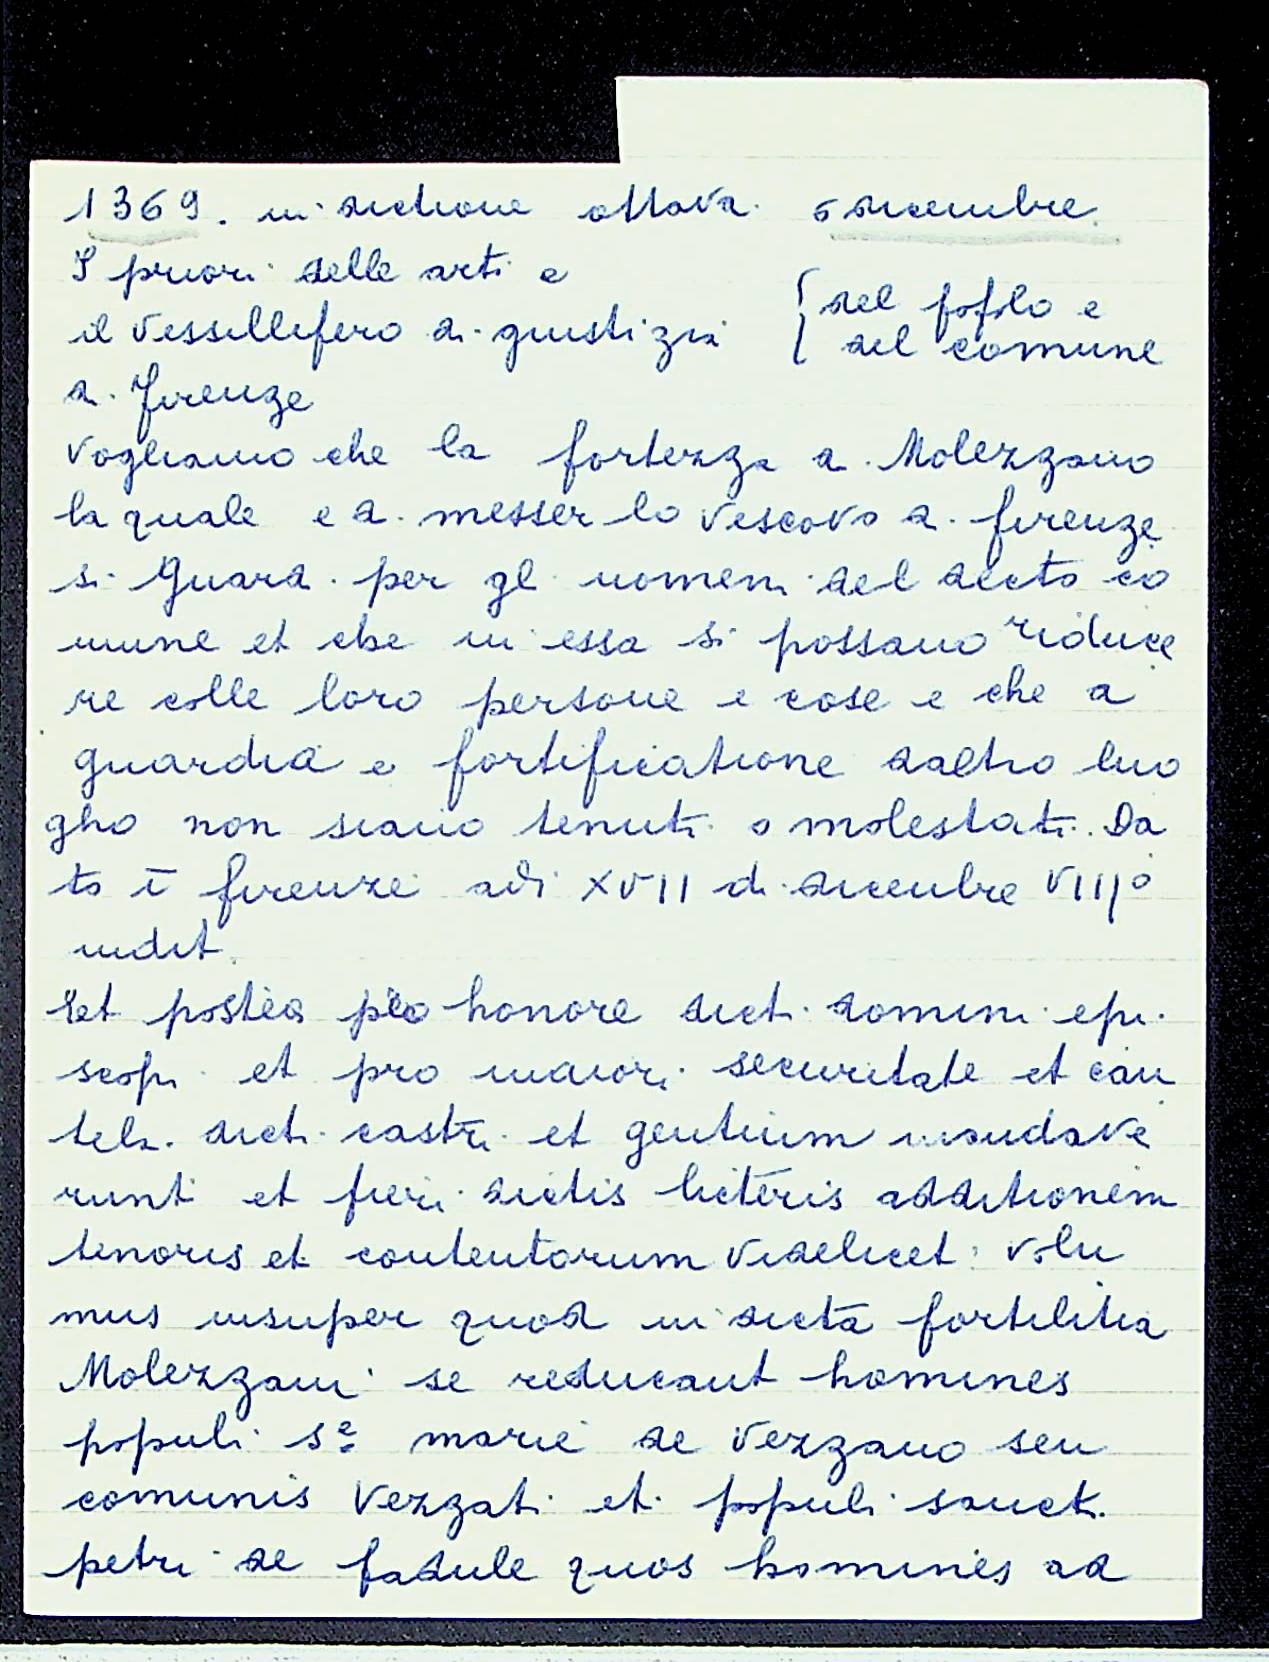 1369. indictione ottava. 5 dicembre.
I priori delle arti e
il vessillifero di giustizia { del popolo e
del comune
di Firenze
vogliamo che la fortezza di Molezzano
la quale e di messer lo vescovo di firenze
si Guardi per gl uomeni del decto co
mune et che in essa si possano riduce
re colle loro persone e cose e che a
guardia e fortificatione daltro luo
gho non siano tenuti o molestati. Da
to ī firenze adi XVII di dicembre VIIJº
indit.
Et postea pro honore dicti domini epi
scopi et pro maiori securitate et cau
tela dicti castri et gentium mandave
runt et fieri dictis licteris additionem
tenoris et contentorum videlicet: volu
mus insuper quod in dicta fortilitia
Molezzani se reducant homines
populi Sᵉ marie de Vezzano seu
comunis Vezzati et populi sancti
petri de fadule quos homines ad